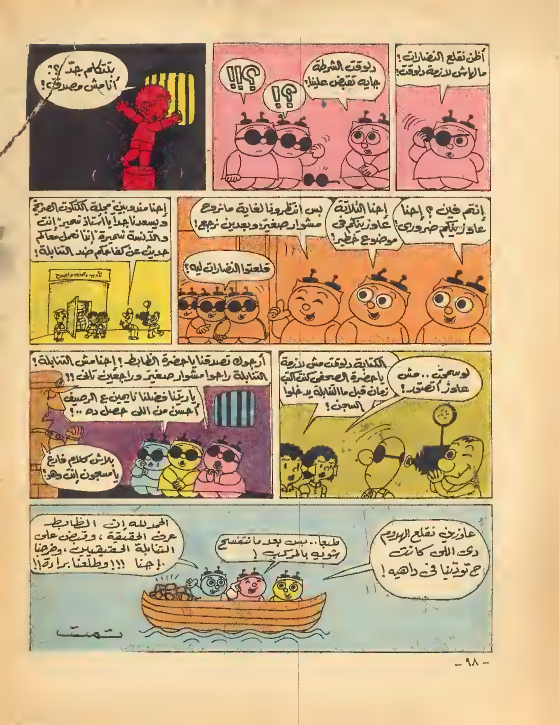 أظن نقلع النضارات!
مالهاش لازمة دلوقت!
دلوقت الشرطة
جايه تقبض علينا!
؟!
؟!!
بتتكلم جدّ؟!
أنا مش مصدق!
إنتم فين؟ إحنا
عاوزينكم ضروري!
إحنا الثلاثة
عاوزينكم فى
موضوع خطير!
بس انتظرونا لغاية ما نروح
مشوار صغير، وبعدين نرجع!
قلعتوا النضارات ليه؟
إحنا مندوبين مجلة الكتكوت
ويسعدنا جداً يا أستاذ سمير إنت
والآنسة سميرة إننا نعمل معاكم
حديث عن كفاحكم ضد التنابلة!
لو سمحت.. مش
عاوز أتصور!
الكتابة دلوقت مش لازمة
يا حضرة الصحفى كنت اكتب
زمان قبل ما التنابلة يدخلوا
السجن!
أرجوك تصدقنا يا حضرة الضابط! إحنا مش التنابلة!
التنابلة راحوا مشوار صغير وراجعين تانى!!
يا ريتنا فضلنا نايمين ع الرصيف
أحسن من اللى حصل ده..!
بلاش كلام فارغ
يا مسجون إنت وهو!
عاوزين نقلع الهدوم
دى اللى كانت
ح تودّينا فى داهيه!
طبعاً.. بس بعد ما نتفسح
شويه بالمركب!
الحمد لله إن الظابط
عرف الحقيقة، وقبض على
التنابلة الحقيقيين، وخرجنا
إحنا!!! وطلعنا براءة!!
تمت
- ٩٨ -